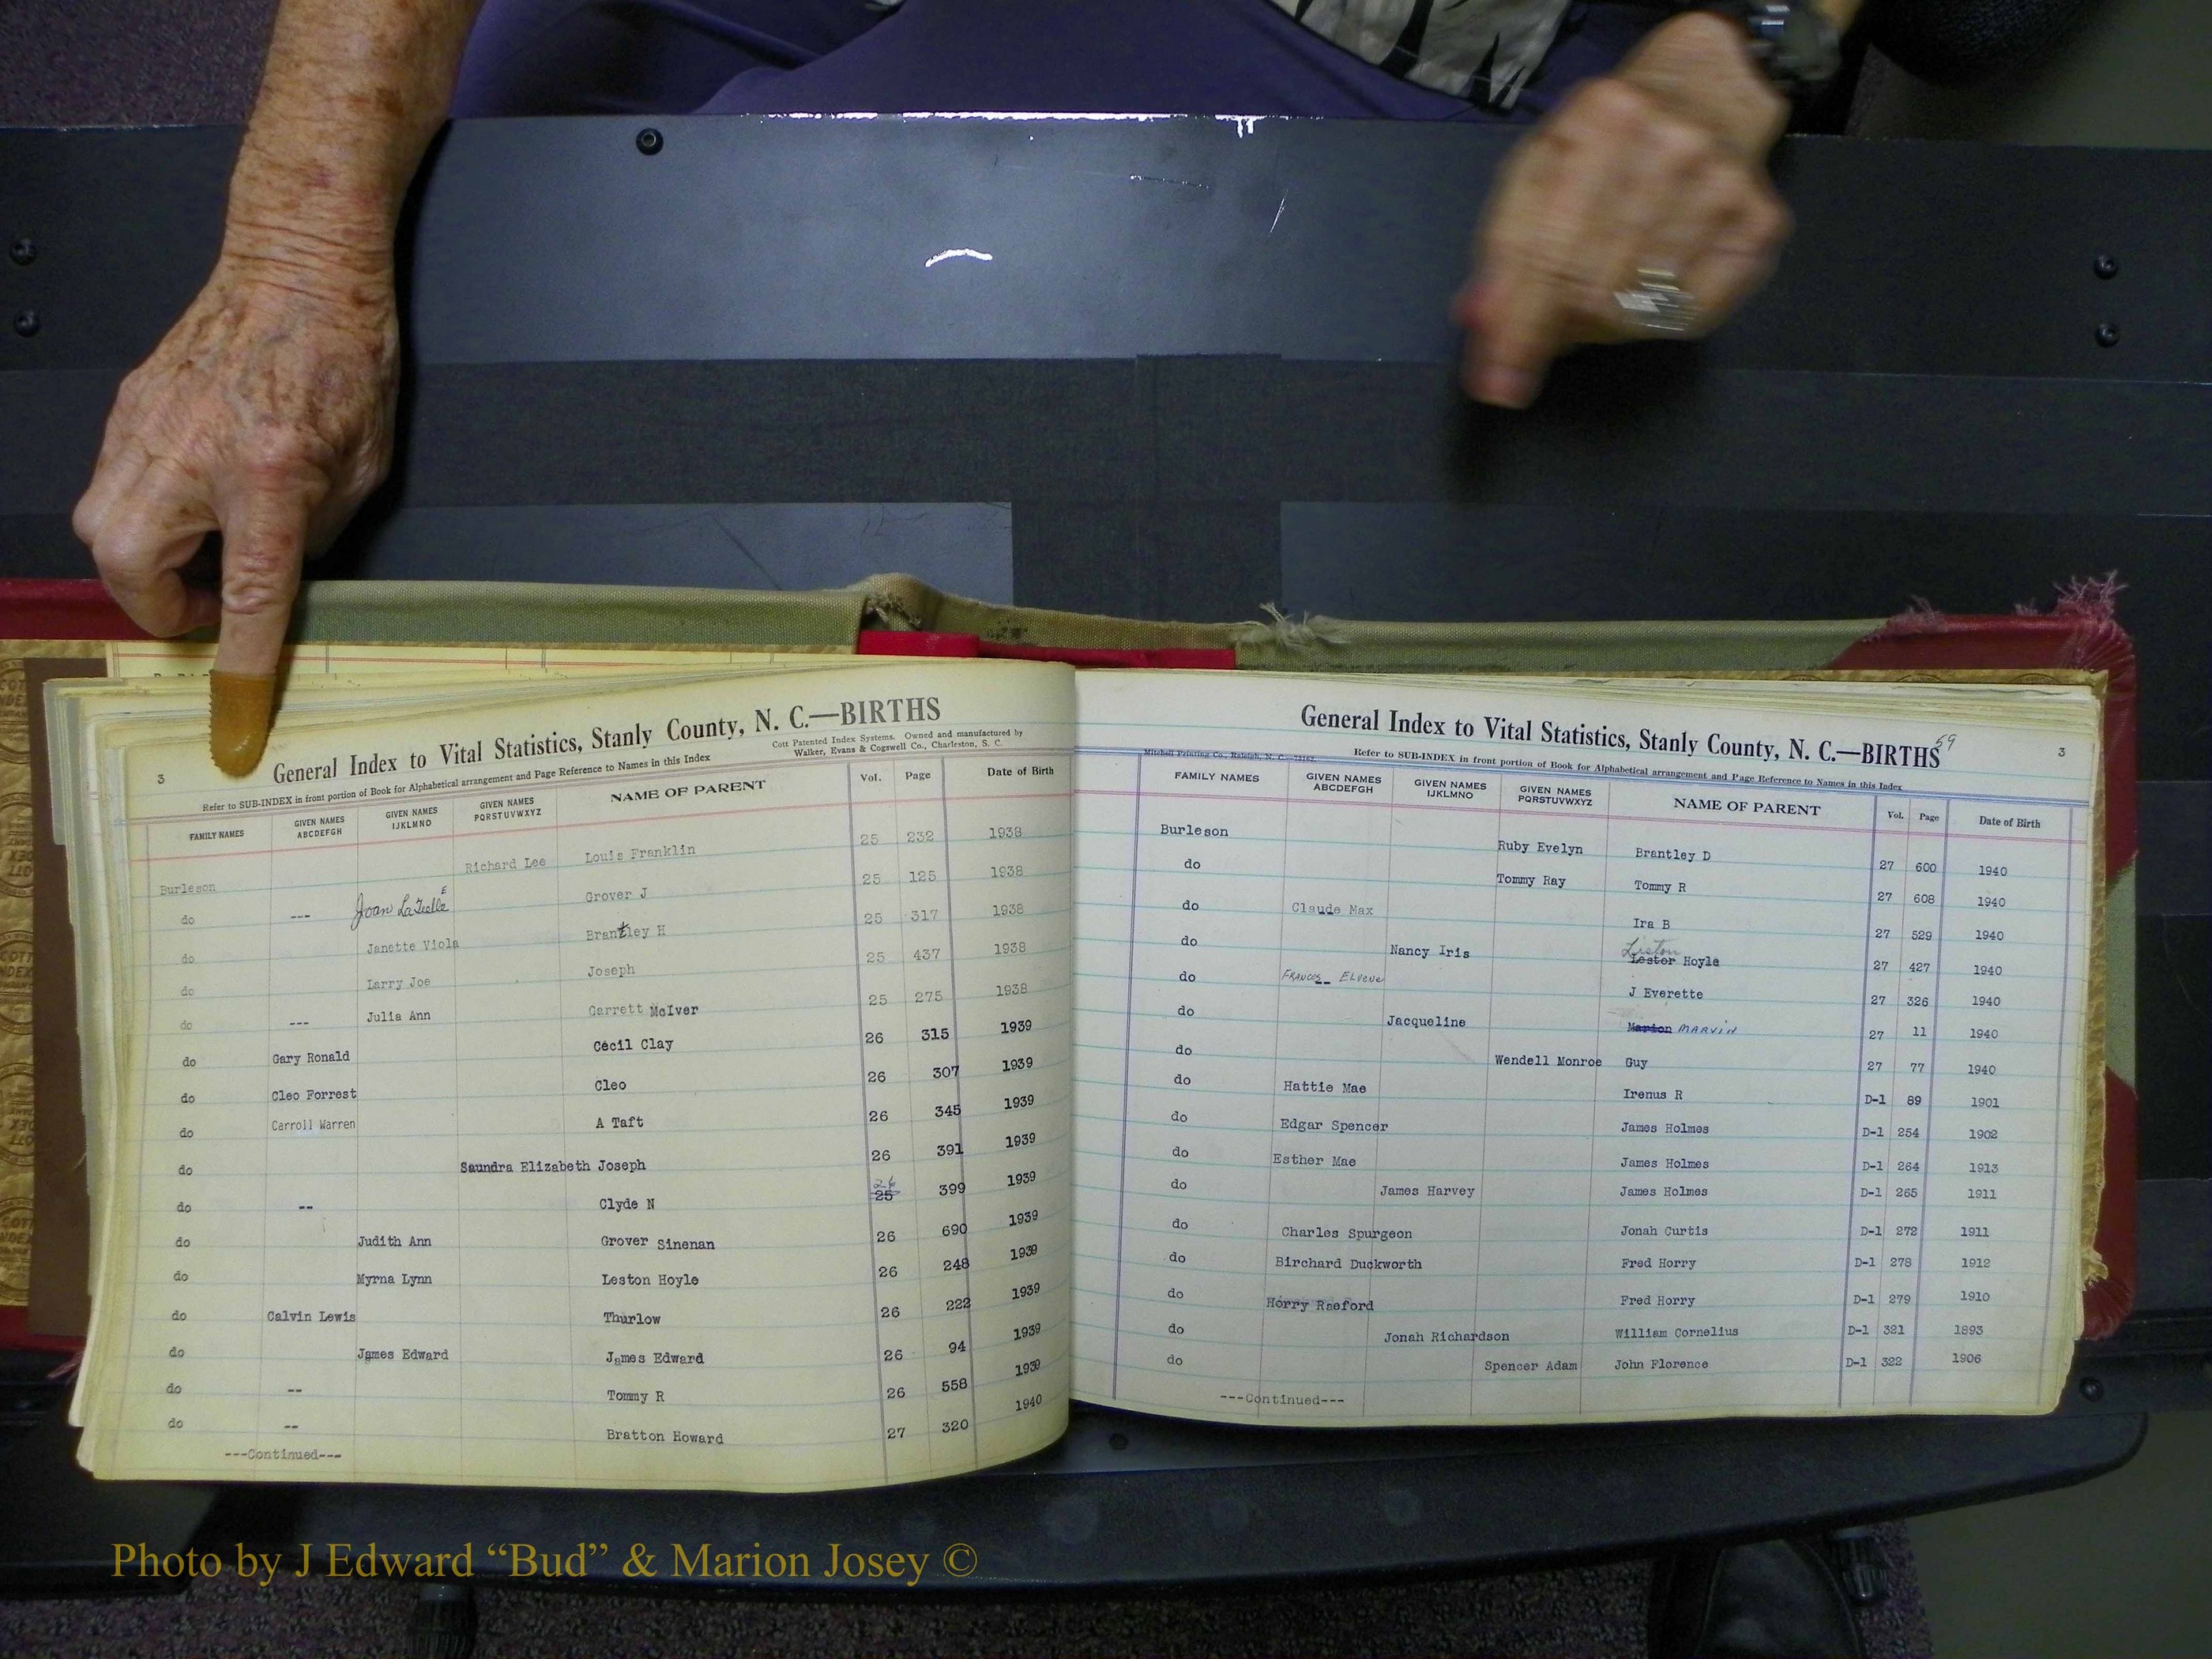 General Index to Vital Statistics, Stanly County, N. C.—BIRTHS
Cott Patented Index Systems. Owned and manufactured by
Walker, Evans & Cogswell Co., Charleston, S. C.
3
Refer to SUB-INDEX in front portion of Book for Alphabetical arrangement and Page Reference to Names in this Index
FAMILY NAMES GIVEN NAMES ABCDEFGH GIVEN NAMES IJKLMNO GIVEN NAMES PQRSTUVWXYZ NAME OF PARENT Vol. Page Date of Birth
Burleson Richard Lee Louis Franklin 25 232 1938
do --- Joan Grover J 25 125 1938
do Janette Viola Brantley H 25 317 1938
do Larry Joe Joseph 25 437 1938
do --- Julia Ann Garrett McIver 25 275 1938
do Gary Ronald Cecil Clay 26 315 1939
do Cleo Forrest Cleo 26 307 1939
do Carroll Warren A Taft 26 345 1939
do Saundra Elizabeth Joseph 26 391 1939
do -- Clyde N 25 26 399 1939
do Judith Ann Grover Sinenan 26 690 1939
do Myrna Lynn Leston Hoyle 26 248 1939
do Calvin Lewis Thurlow 26 222 1939
do James Edward James Edward 26 94 1939
do -- Tommy R 26 558 1939
do -- Bratton Howard 27 320 1940
---Continued---
General Index to Vital Statistics, Stanly County, N. C.—BIRTHS
59
3
Mitchell Printing Co., Raleigh, N. C.
Refer to SUB-INDEX in front portion of Book for Alphabetical arrangement and Page Reference to Names in this Index
FAMILY NAMES GIVEN NAMES ABCDEFGH GIVEN NAMES IJKLMNO GIVEN NAMES PQRSTUVWXYZ NAME OF PARENT Vol. Page Date of Birth
Burleson Ruby Evelyn Brantley D 27 600 1940
do Tommy Ray Tommy R 27 608 1940
do Claude Max Ira B 27 529 1940
do Nancy Iris Lester Leston Hoyle 27 427 1940
do Frances J Everette 27 326 1940
do Jacqueline Marion MARVIN 27 11 1940
do Wendell Monroe Guy 27 77 1940
do Hattie Mae Irenus R D-1 89 1901
do Edgar Spencer James Holmes D-1 254 1902
do Esther Mae James Holmes D-1 264 1913
do James Harvey James Holmes D-1 265 1911
do Charles Spurgeon Jonah Curtis D-1 272 1911
do Birchard Duckworth Fred Horry D-1 278 1912
do Horry Raeford Fred Horry D-1 279 1910
do Jonah Richardson William Cornelius D-1 321 1893
do Spencer Adam John Florence D-1 322 1906
---Continued---
Photo by J Edward “Bud” & Marion Josey ©